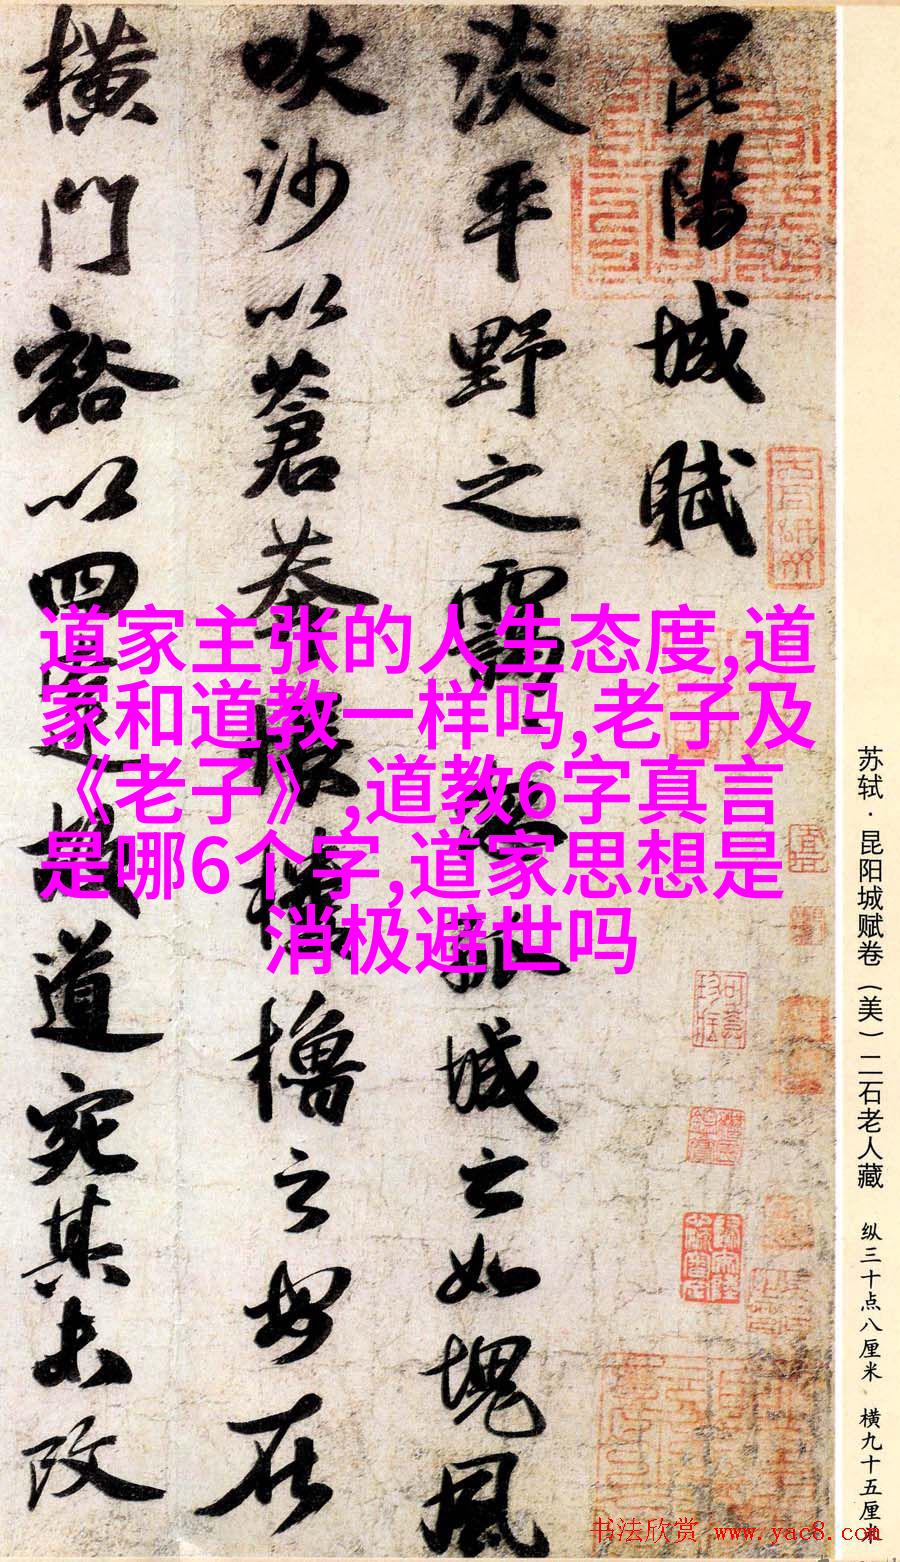 昆陽城賦
淡平野之靄忽孤城之如塊風
吹沙以蒼莽悵樓櫓之安在
橫門豁以四達故道宛其未改
道家主张的人生态度,道
家和道教一样吗,老子及
《老子》,道教6字真言
是哪6个字,道家思想是
消极避世吗
苏轼·昆阳城赋卷(美)二石老人藏 纵三十点八厘米 横九十五厘米
书法欣赏 www.yac8.com